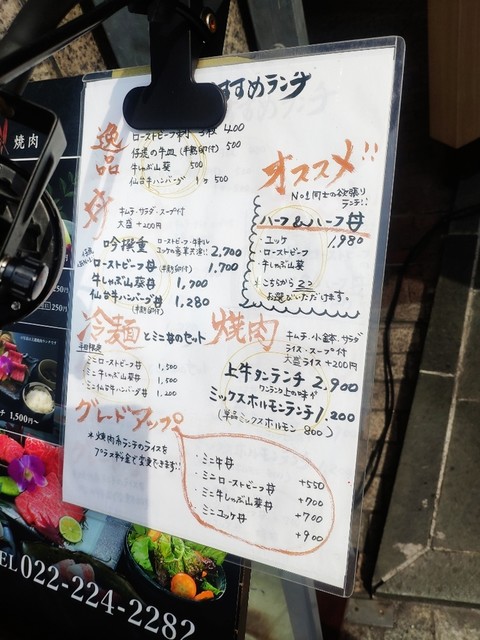 すすめランチ
逸品
ローストビーフ 400
仔虎の牛皿 (半熟卵付) 500
牛しゃぶ山葵 500
仙台牛ハンバーグ 1ヶ 500
オススメ!!
No.1同士の欲張り
ランチ!!
ハーフ&ハーフ丼
1,980
・ユッケ
・ローストビーフ
・牛しゃぶ山葵
こちらから2つ
お選びいただけます。
丼
キムチ・サラダ・スープ付
大盛+200円
吟撰重 2,700
ローストビーフ丼 (半熟卵付) 1,700
牛しゃぶ山葵丼 1,700
仙台牛ハンバーグ丼 1,280
(半熟卵付)
冷麺とミニ丼のセット
ミニローストビーフ丼 1,500
ミニ牛しゃぶ山葵丼 1,500
ミニ仙台牛ハンバーグ丼 1,200
焼肉
キムチ・小鉢・サラダ
ライス・スープ付
大盛ライス+200円
上牛タンランチ 2,900
ワンランク上の味が
ミックスホルモンランチ 1,200
(単品ミックスホルモン 800)
グレードアップ
*焼肉系ランチのライスを
プラス料金で変更できます!!
・ミニ牛丼 +550
・ミニローストビーフ丼 +700
・ミニ牛しゃぶ山葵丼 +700
・ミニユッケ丼 +900
焼肉
250円
1,500円~
TEL 022-224-2282